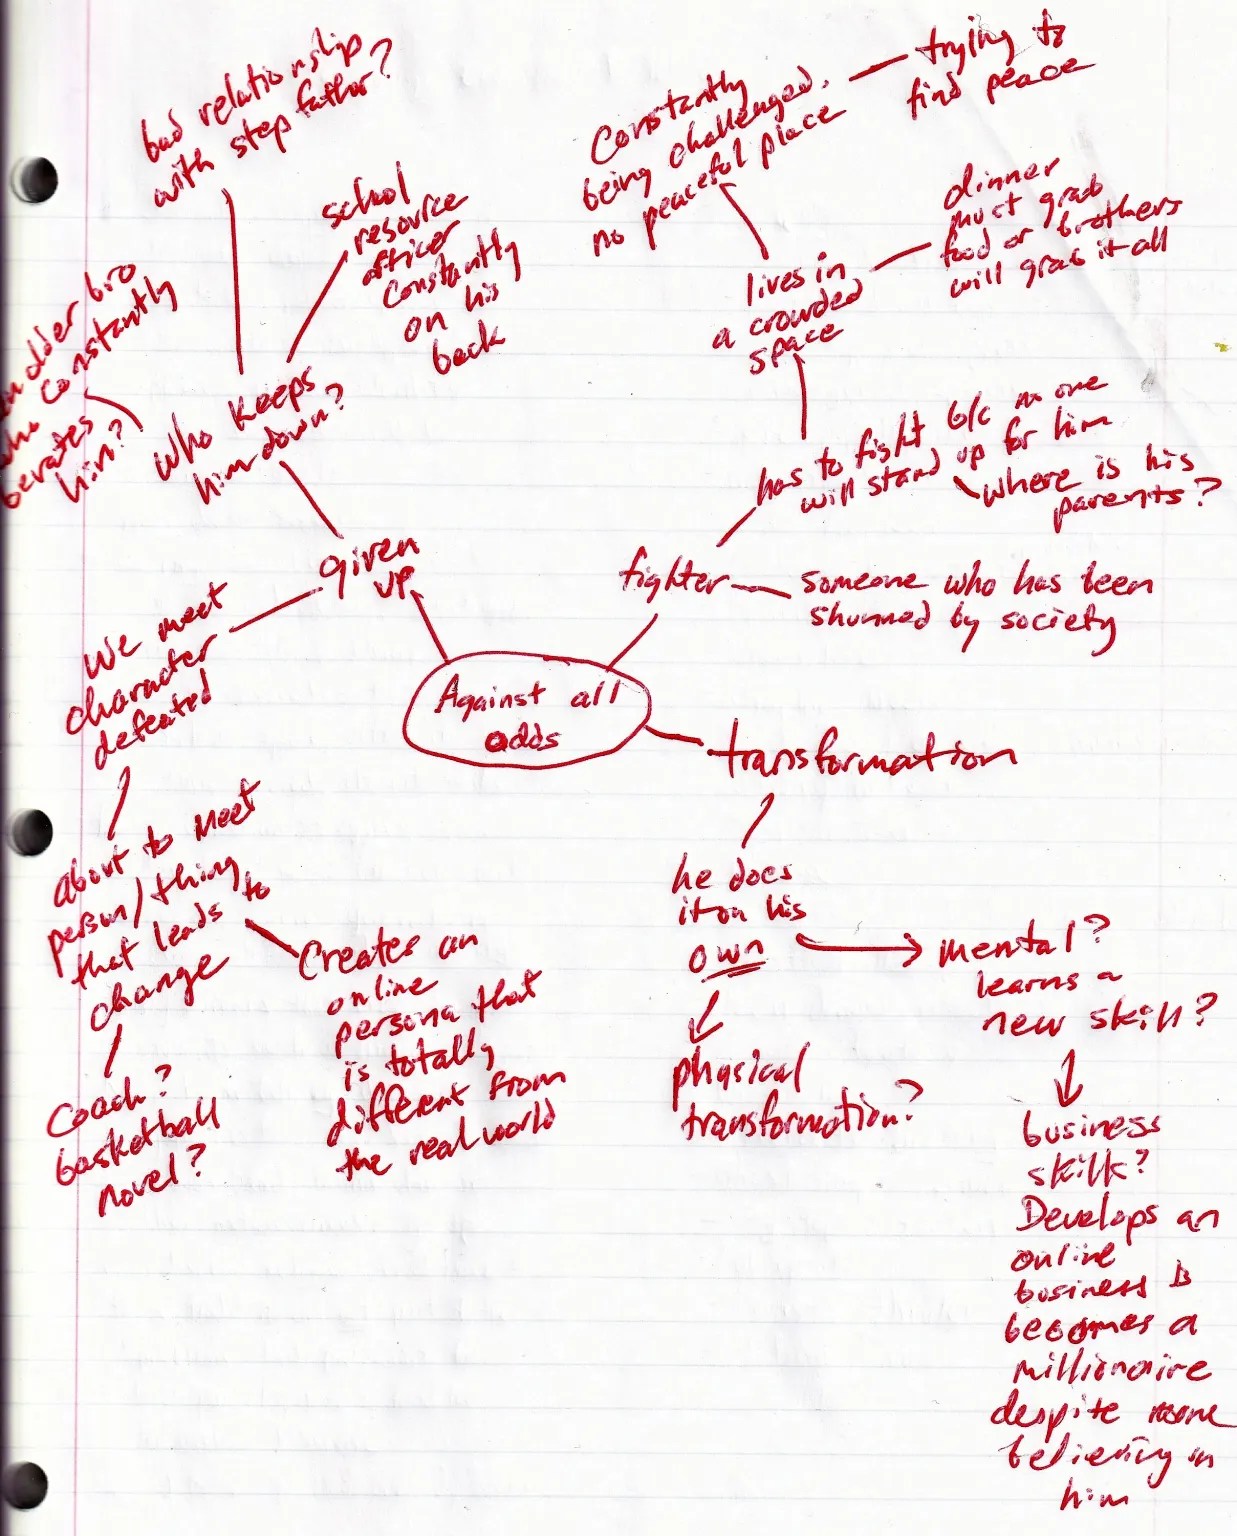 bad relationship
with step father?
school
resource
officer
constantly
on his
back
older bro
who constantly
berates
him?
who keeps
him down?
given
up
We meet
character
defeated
about to meet
person/thing
that leads to
change
Coach?
basketball
novel?
Creates an
online
persona that
is totally
different from
the real world
Against all
odds
fighter
someone who has been
shunned by society
has to fight b/c no one
will stand up for him
where is his
parents?
lives in
a crowded
space
Constantly
being challenged.
no peaceful place
trying to
find peace
dinner
must grab
food or brothers
will grab it all
transformation
he does
it on his
own
physical
transformation?
mental?
learns a
new skill?
business
skills?
Develops an
online
business &
becomes a
millionaire
despite none
believing in
him